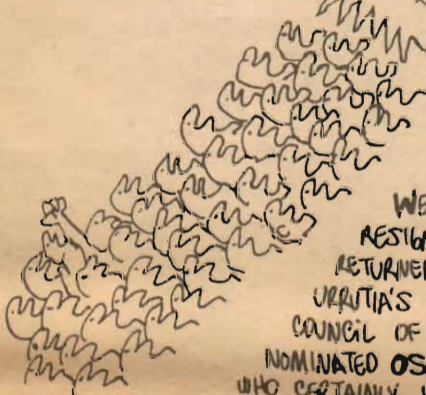 WE
RESIGN
RETURNED
URRUTIA'S
COUNCIL OF
NOMINATED OS
WHO CERTAINLY